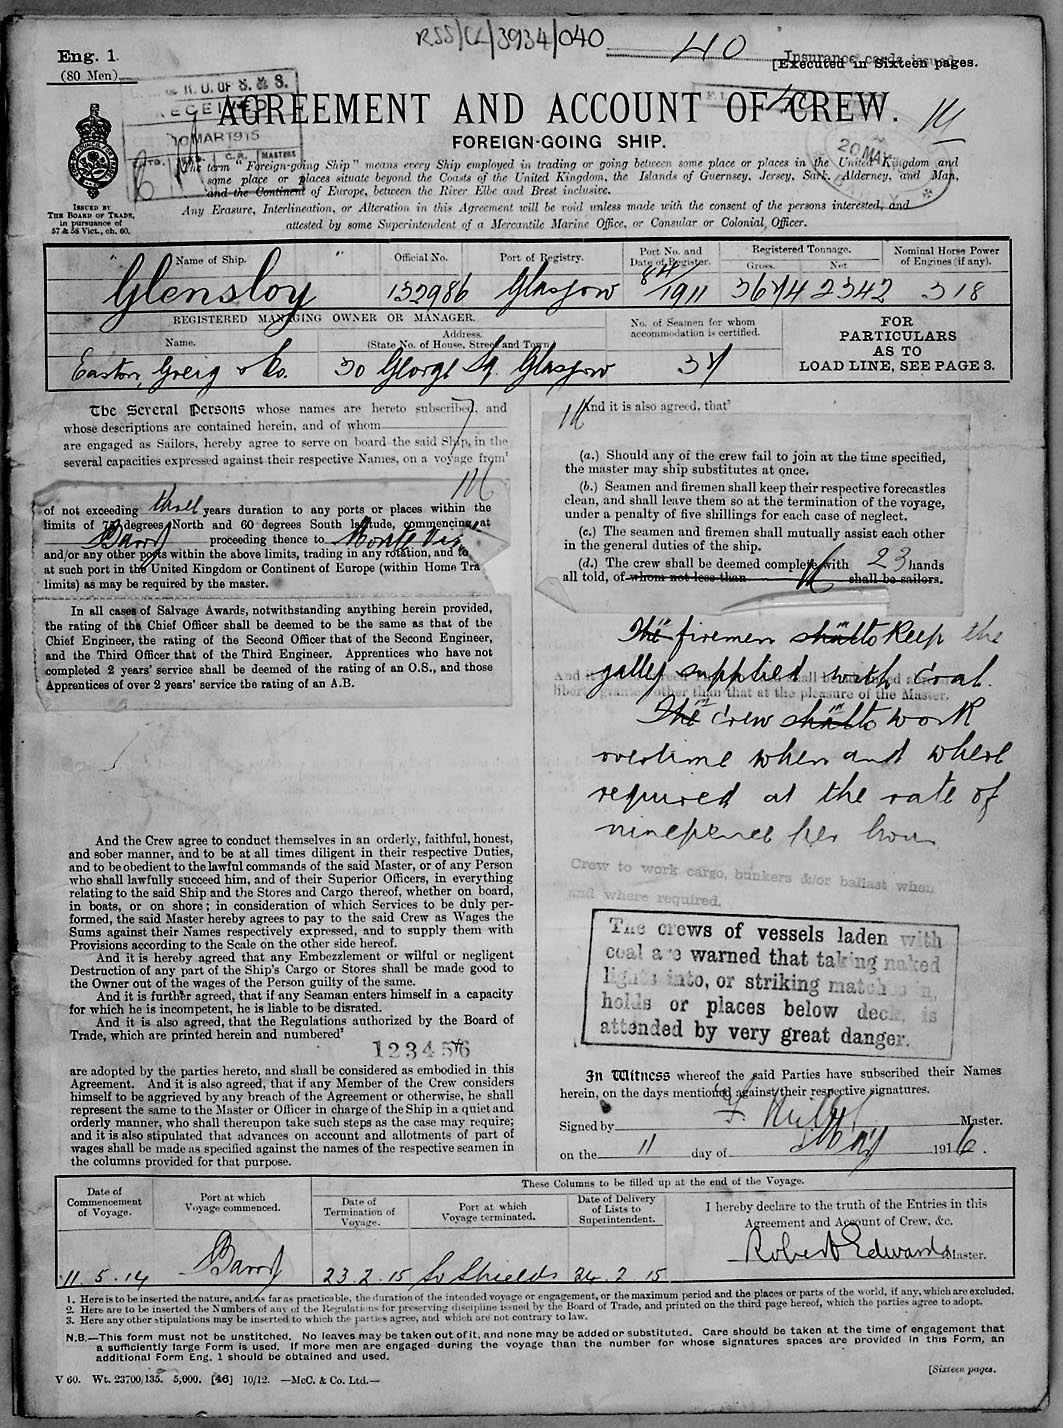 RSS/CL/3934/040
40
Eng. 1.
(80 Men).
Insurance cards issued
[Executed in Sixteen pages.
R. O. OF S. & S.
RECEIVED
10 MAR 1915
MASTERS
AGREEMENT AND ACCOUNT OF CREW.
20 MAR
FOREIGN-GOING SHIP.
The term "Foreign-going Ship" means every Ship employed in trading or going between some place or places in the United Kingdom and
some place or places situate beyond the Coasts of the United Kingdom, the Islands of Guernsey, Jersey, Sark, Alderney, and Man,
and the Continent of Europe, between the River Elbe and Brest inclusive.
Any Erasure, Interlineation, or Alteration in this Agreement will be void unless made with the consent of the persons interested, and
attested by some Superintendent of a Mercantile Marine Office, or Consular or Colonial Officer.
ISSUED BY
THE BOARD OF TRADE,
in pursuance of
57 & 58 Vict., ch. 60.
Name of Ship.
Official No.
Port of Registry.
Port No. and
Date of Register.
Registered Tonnage.
Gross.
Net
Nominal Horse Power
of Engines (if any).
"Glensloy"
132986
Glasgow
1911
3674
2342
318
REGISTERED MANAGING OWNER OR MANAGER.
Name.
Address.
(State No. of House, Street and Town)
No. of Seamen for whom
accommodation is certified.
FOR
PARTICULARS
AS TO
LOAD LINE, SEE PAGE 3.
Easton, Greig & Co.
30 George Sq. Glasgow
37
The Several Persons whose names are hereto subscribed, and
whose descriptions are contained herein, and of whom 7
are engaged as Sailors, hereby agree to serve on board the said Ship, in the
several capacities expressed against their respective Names, on a voyage from¹
of not exceeding three years duration to any ports or places within the
limits of 75 degrees North and 60 degrees South latitude, commencing at
Barry proceeding thence to Monte Video
and/or any other ports within the above limits, trading in any rotation, and to
at such port in the United Kingdom or Continent of Europe (within Home Tra
limits) as may be required by the master.
In all cases of Salvage Awards, notwithstanding anything herein provided,
the rating of the Chief Officer shall be deemed to be the same as that of the
Chief Engineer, the rating of the Second Officer that of the Second Engineer,
and the Third Officer that of the Third Engineer. Apprentices who have not
completed 2 years' service shall be deemed of the rating of an O.S., and those
Apprentices of over 2 years' service the rating of an A.B.
And the Crew agree to conduct themselves in an orderly, faithful, honest,
and sober manner, and to be at all times diligent in their respective Duties,
and to be obedient to the lawful commands of the said Master, or of any Person
who shall lawfully succeed him, and of their Superior Officers, in everything
relating to the said Ship and the Stores and Cargo thereof, whether on board,
in boats, or on shore; in consideration of which Services to be duly per-
formed, the said Master hereby agrees to pay to the said Crew as Wages the
Sums against their Names respectively expressed, and to supply them with
Provisions according to the Scale on the other side hereof.
And it is hereby agreed that any Embezzlement or wilful or negligent
Destruction of any part of the Ship's Cargo or Stores shall be made good to
the Owner out of the wages of the Person guilty of the same.
And it is further agreed, that if any Seaman enters himself in a capacity
for which he is incompetent, he is liable to be disrated.
And it is also agreed, that the Regulations authorized by the Board of
Trade, which are printed herein and numbered²
123456
are adopted by the parties hereto, and shall be considered as embodied in this
Agreement. And it is also agreed, that if any Member of the Crew considers
himself to be aggrieved by any breach of the Agreement or otherwise, he shall
represent the same to the Master or Officer in charge of the Ship in a quiet and
orderly manner, who shall thereupon take such steps as the case may require;
and it is also stipulated that advances on account and allotments of part of
wages shall be made as specified against the names of the respective seamen in
the columns provided for that purpose.
And it is also agreed, that³
(a.) Should any of the crew fail to join at the time specified,
the master may ship substitutes at once.
(b.) Seamen and firemen shall keep their respective forecastles
clean, and shall leave them so at the termination of the voyage,
under a penalty of five shillings for each case of neglect.
(c.) The seamen and firemen shall mutually assist each other
in the general duties of the ship.
(d.) The crew shall be deemed complete with 23 hands
all told, of whom not less than shall be sailors.
The firemen shall to keep the
galley supplied with coal.
liberty granted other than that at the pleasure of the Master.
The Crew shall to work
overtime when and where
required at the rate of
ninepence per hour
Crew to work cargo, bunkers &/or ballast when
and where required.
The crews of vessels laden with
coal are warned that taking naked
lights into, or striking matches in,
holds or places below deck, is
attended by very great danger.
In Witness whereof the said Parties have subscribed their Names
herein, on the days mentioned against their respective signatures.
Signed by Master.
on the 11 day of May 191
These Columns to be filled up at the end of the Voyage.
Date of
Commencement
of Voyage.
Port at which
Voyage commenced.
Date of
Termination of
Voyage.
Port at which
Voyage terminated.
Date of Delivery
of Lists to
Superintendent.
I hereby declare to the truth of the Entries in this
Agreement and Account of Crew, &c.
Robert Edwards Master.
11.5.14
Barry
23.2.15
So Shields
24.2.15
1. Here is to be inserted the nature, and as far as practicable, the duration of the intended voyage or engagement, or the maximum period and the places or parts of the world, if any, which are excluded.
2. Here are to be inserted the Numbers of any of the Regulations for preserving discipline issued by the Board of Trade, and printed on the third page hereof, which the parties agree to adopt.
3. Here any other stipulations may be inserted to which the parties agree, and which are not contrary to law.
N.B.—This form must not be unstitched. No leaves may be taken out of it, and none may be added or substituted. Care should be taken at the time of engagement that
a sufficiently large Form is used. If more men are engaged during the voyage than the number for whose signatures spaces are provided in this Form, an
additional Form Eng. 1 should be obtained and used.
[Sixteen pages.
V 60. Wt. 23700/135. 5,000. [46] 10/12. —McC. & Co. Ltd.—